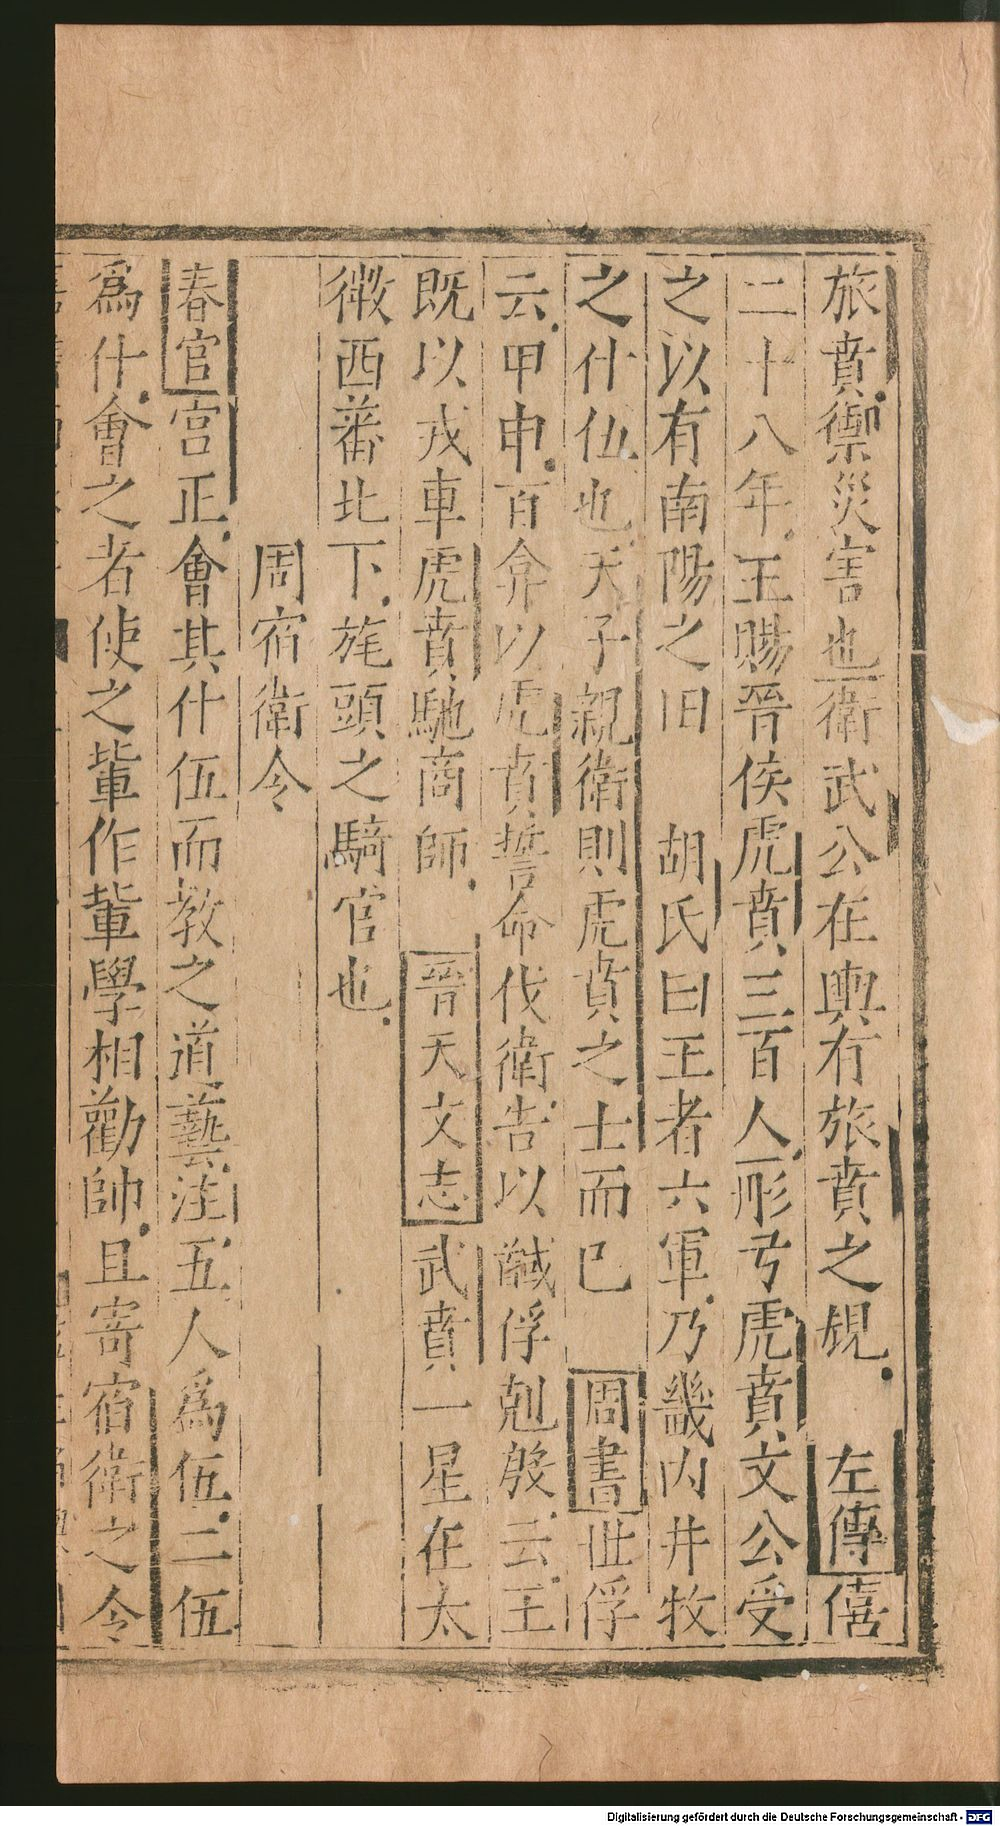 旅賁禦災害也衛武公在輿有旅賁之規　左傳僖
二十八年王賜晉侯虎賁三百人一彤弓虎賁文公受
之以有南陽之旧　胡氏曰王者六軍乃畿内井牧
之什伍也天子親衛則虎賁之士而已　周書世俘
云甲申百弇以虎賁誓命伐衛告以馘俘剋殷云王
既以戎車虎賁馳商師　晉天文志武賁一星在太
微西蕃北下旄頭之騎官也
周宿衛令
春官宮正會其什伍而教之道藝注五人爲伍二伍
爲什會之者使之輩作輩學相勸帥且寄宿衛之令
Digitalisierung gefördert durch die Deutsche Forschungsgemeinschaft - DFG